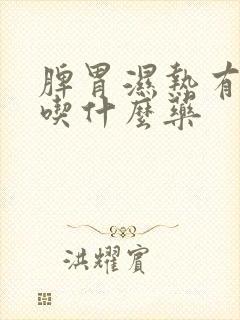 脾胃濕熱有
喫什麼藥
洪耀賓